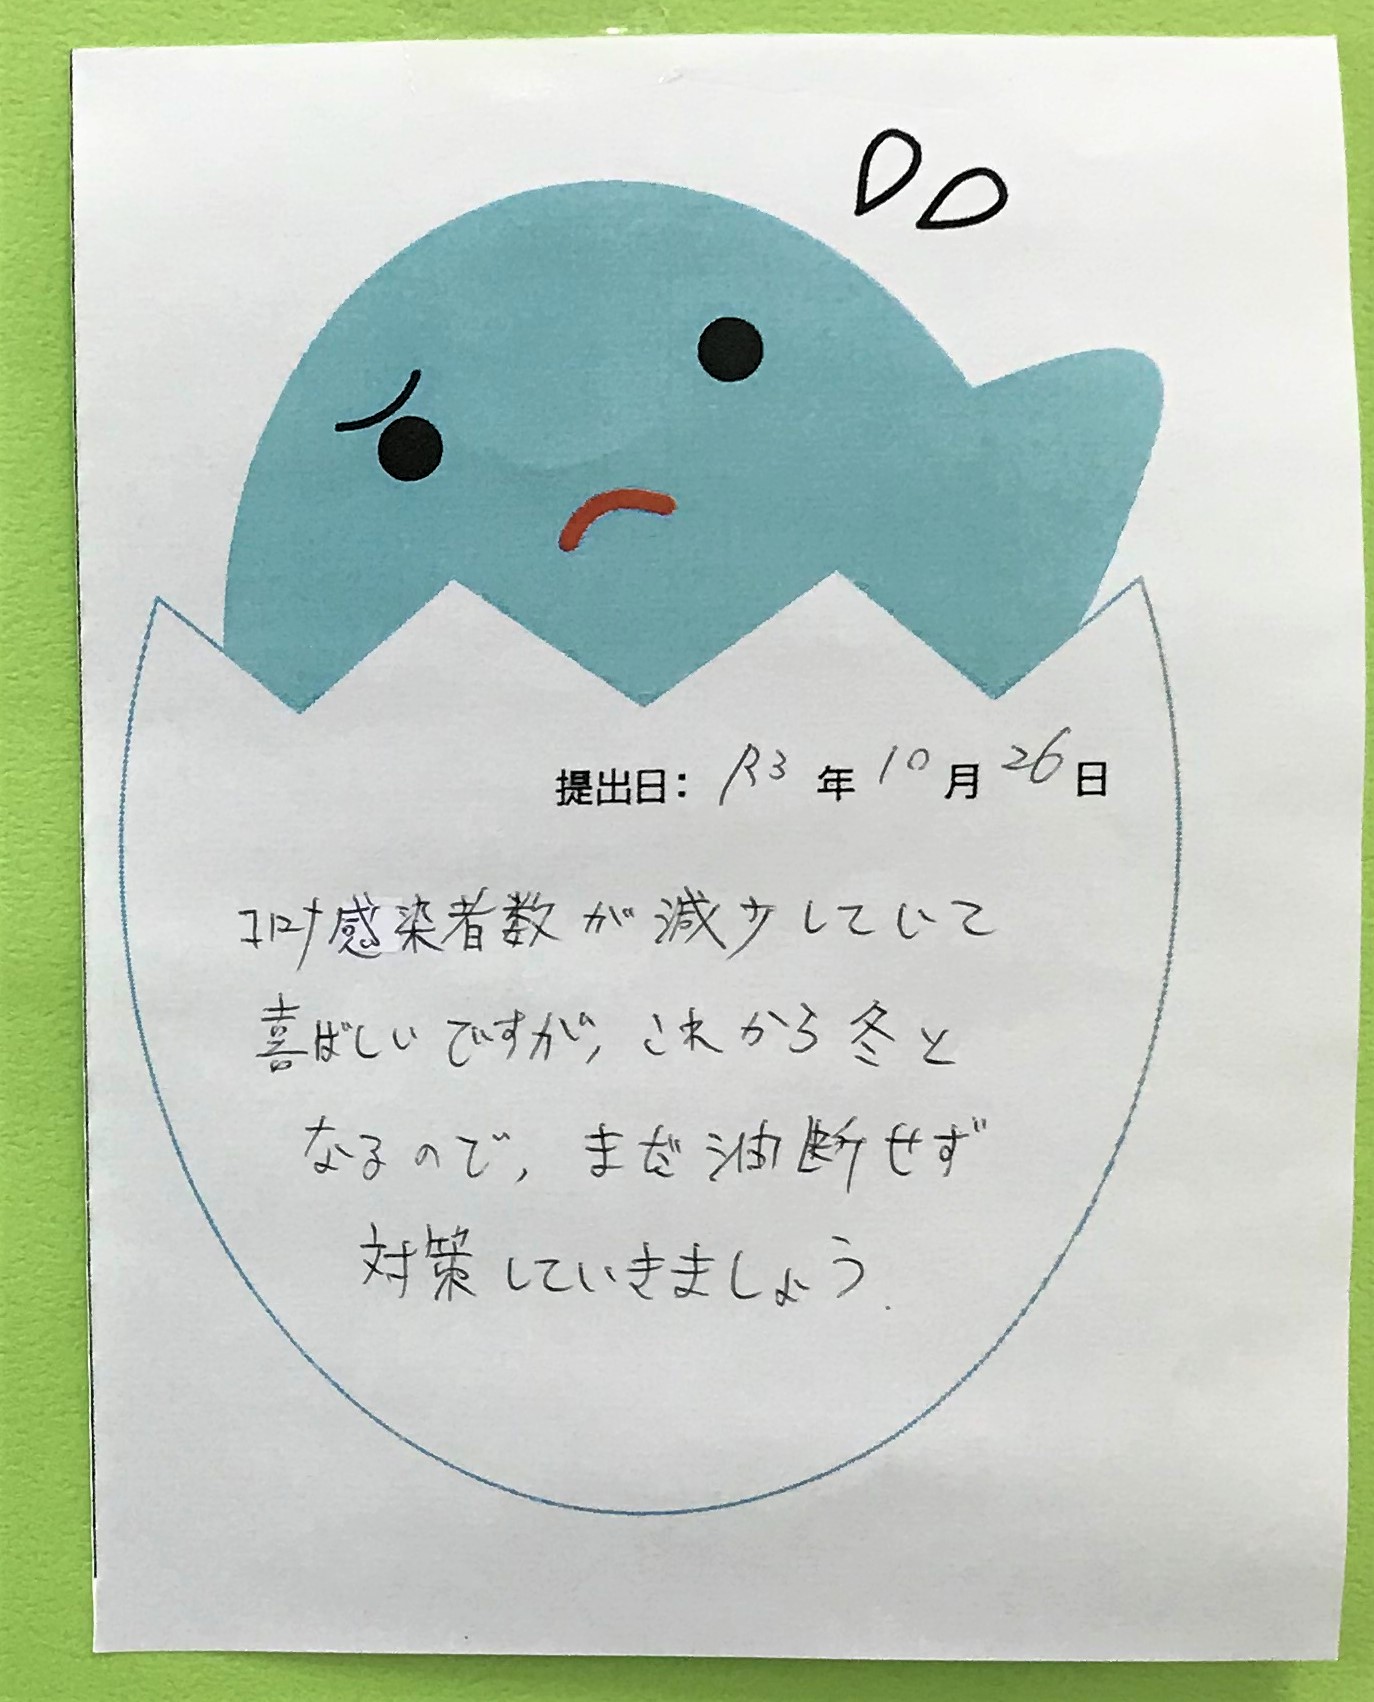 提出日： R3 年 10 月 26 日
コロナ感染者数が減少していて
喜ばしいですが、これから冬と
なるので、まだ油断せず
対策していきましょう.